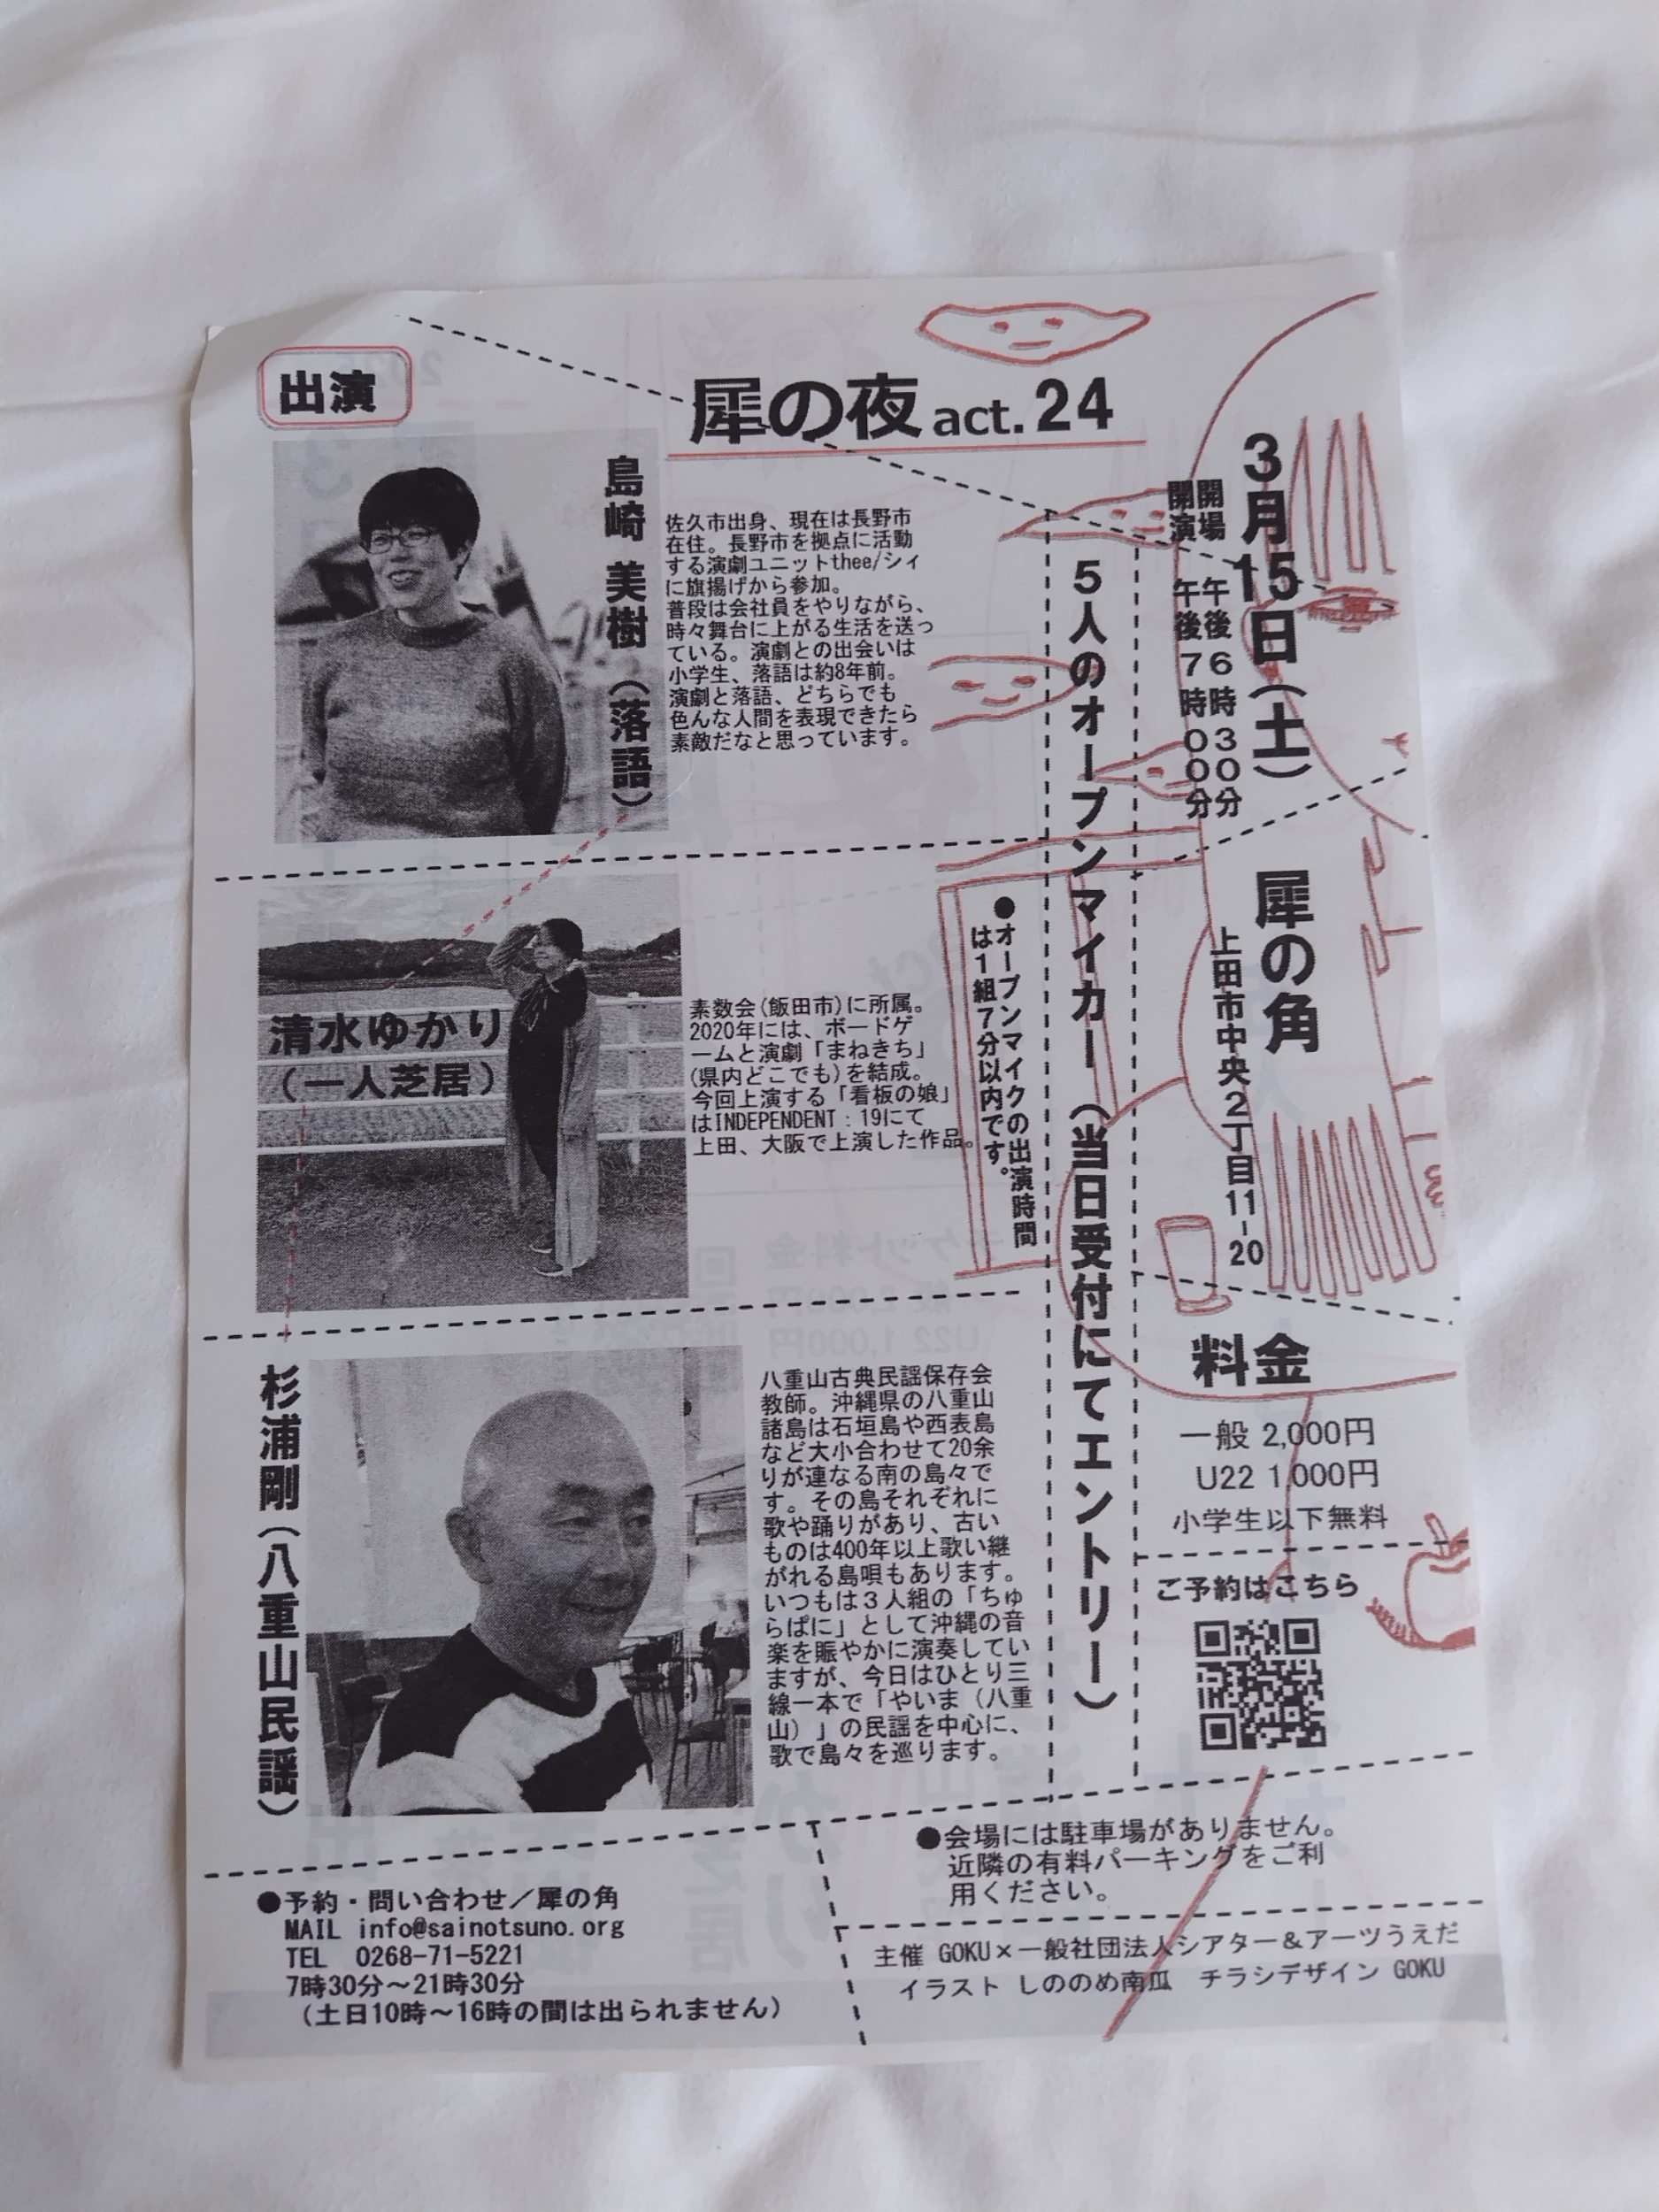 出演
犀の夜 act. 24
3月15日（土）
開場 午後6時30分
開演 午後7時00分
犀の角
上田市中央2丁目11-20
料金
一般 2,000円
U22 1,000円
小学生以下無料
ご予約はこちら
5人のオープンマイカー（当日受付にてエントリー）
●オープンマイクの出演時間
は1組7分以内です。
島崎 美樹（落語）
佐久市出身、現在は長野市
在住。長野市を拠点に活動
する演劇ユニットthee/シィ
に旗揚げから参加。
普段は会社員をやりながら、
時々舞台に上がる生活を送っ
ている。演劇との出会いは
小学生、落語は約8年前。
演劇と落語、どちらでも
色んな人間を表現できたら
素敵だなと思っています。
清水ゆかり
（一人芝居）
素数会(飯田市)に所属。
2020年には、ボードゲ
ームと演劇「まねきち」
(県内どこでも)を結成。
今回上演する「看板の娘」
はINDEPENDENT：19にて
上田、大阪で上演した作品。
杉浦剛（八重山民謡）
八重山古典民謡保存会
教師。沖縄県の八重山
諸島は石垣島や西表島
など大小合わせて20余
りが連なる南の島々で
す。その島それぞれに
歌や踊りがあり、古い
ものは400年以上歌い継
がれる島唄もあります。
いつもは３人組の「ちゅ
らぱに」として沖縄の音
楽を賑やかに演奏してい
ますが、今日はひとり三
線一本で「やいま（八重
山）」の民謡を中心に、
歌で島々を巡ります。
●予約・問い合わせ／犀の角
MAIL info@sainotsuno.org
TEL 0268-71-5221
7時30分～21時30分
（土日10時～16時の間は出られません）
●会場には駐車場がありません。
近隣の有料パーキングをご利
用ください。
主催 GOKU×一般社団法人シアター＆アーツうえだ
イラスト しののめ南瓜 チラシデザイン GOKU